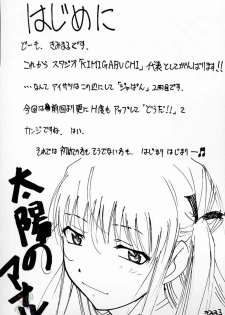 はじめに
どーも、きみまるです。
これから スタジオ「KIMIGABUCHI」代表としてがんばります!!
…なんて アイサツはこの辺にして「じゃぱん」2冊目です。
今回は前回より更に H度も アップして「どうだ!!」って
カンジですね。はい。
それでは 初めての方も そうでない方も はじまり はじまりー♪
太陽の